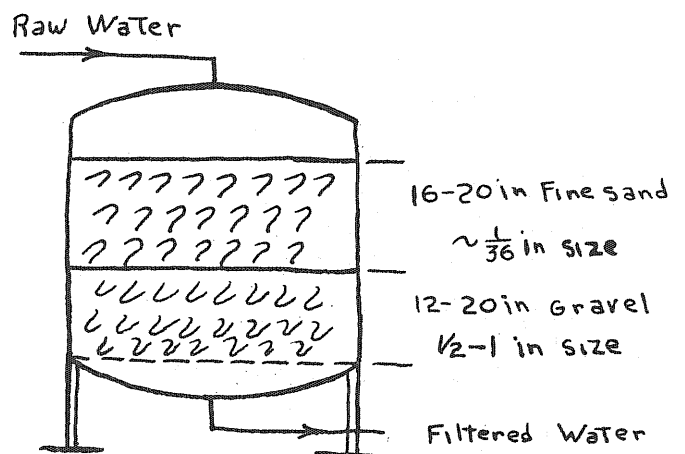 Raw Water
16-20 in Fine sand
~ 1/36 in size
12-20 in Gravel
1/2-1 in size
Filtered Water